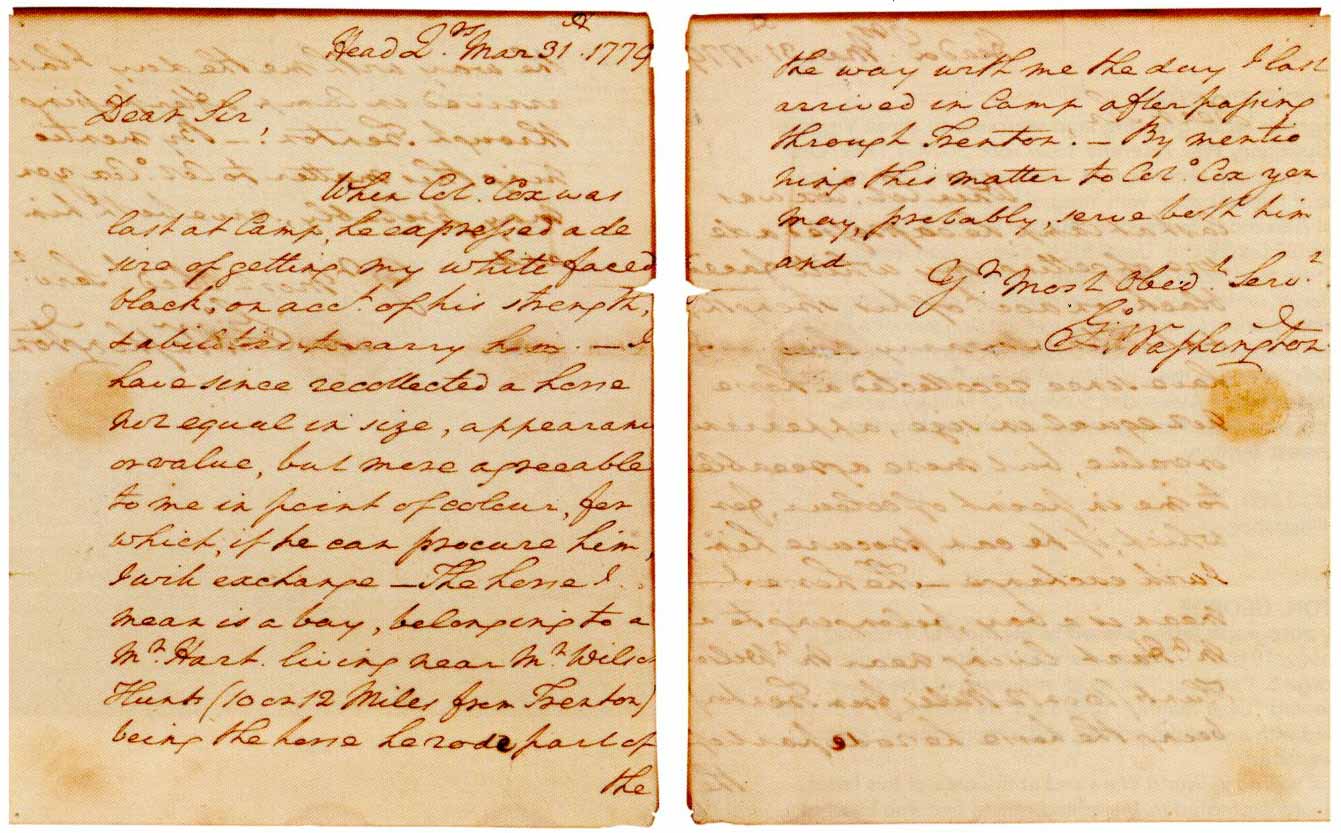 Head Qrs. Mar 31st. 1779
Dear Sir,
When Colo. Cox was
last at Camp, he expressed a de
sire of getting my white faced
black, on acct. of his strength,
& abilities to carry him. – I
have since recollected a horse
not equal in size, appearanc
or value, but more agreeable
to me in point of colour, for
which, if he can procure him,
I will exchange – The horse I
mean is a bay, belonging to a
Mr. Hart. living near Mr. Wilson
Hunts (10 or 12 Miles from Trenton)
being the horse he rode part of
the
the way with me the day I last
arrived in Camp after passing
through Trenton. – By mentio
ning this matter to Colo. Cox you
may, probably, serve both him
and
Yr. Most Obedt. Servt.
Go. Washington